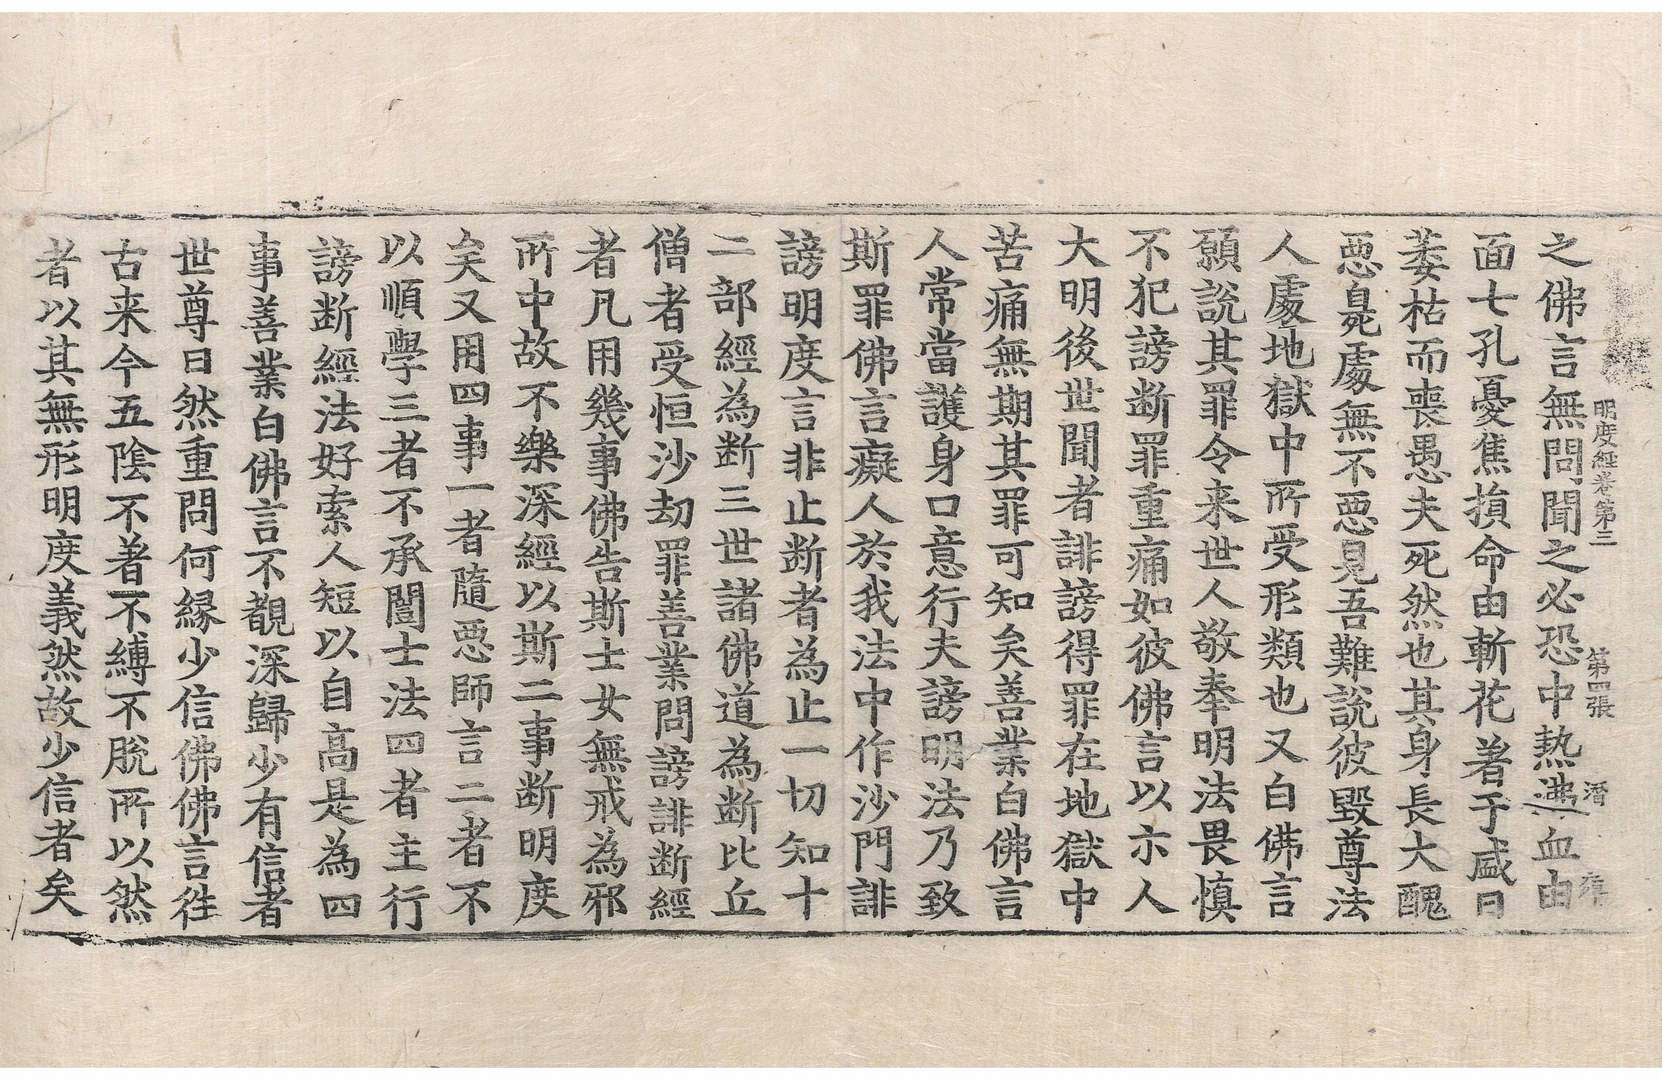 明度經卷第三　第四張　潛
之佛言無問聞之必恐中熱沸血由
面七孔憂焦損命由斬花著于盛日
萎枯而喪愚夫死然也其身長大醜
惡臰處無不惡見吾難說彼毀尊法
人處地獄中所受形類也又白佛言
願說其罪令来世人敬奉明法畏慎
不犯謗断罪重痛如彼佛言以示人
大明後世聞者誹謗得罪在地獄中
苦痛無期其罪可知矣善業白佛言
人常當護身口意行夫謗明法乃致
斯罪佛言癡人於我法中作沙門誹
謗明度言非止断者為止一切知十
二部經為断三世諸佛道為断比丘
僧者受恒沙劫罪善業問謗誹断經
者凡用幾事佛告斯士女無戒為邪
所中故不樂深經以斯二事断明度
矣又用四事一者隨惡師言二者不
以順學三者不承闓士法四者主行
謗断經法好索人短以自高是為四
事善業白佛言不覩深歸少有信者
世尊曰然重問何緣少信佛佛言往
古来今五陰不著不縛不脫所以然
者以其無形明度義然故少信者矣